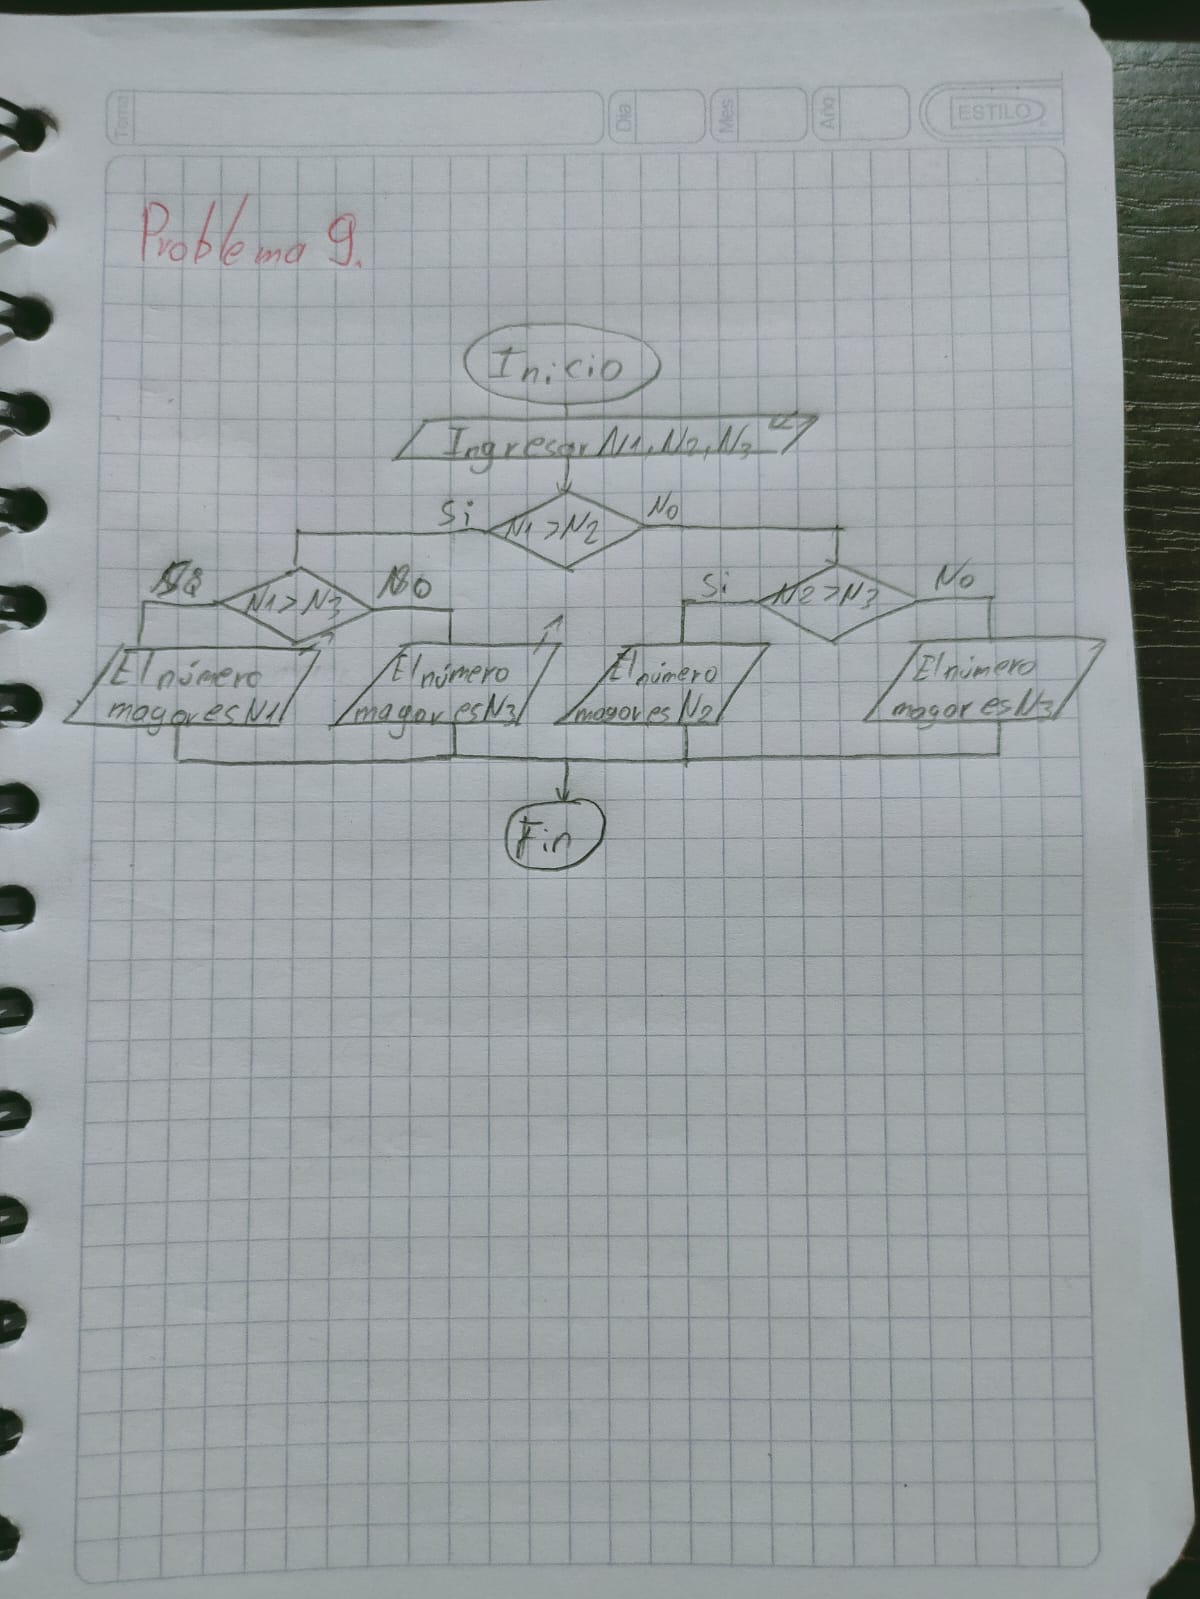 Tema Dia Mes Año ESTILO
Problema 9.
Inicio
Ingresar N1, N2, N3
Si N1 > N2 No
N1 > N3 Si N2 > N3 No
El número
mayor es N1
El número
mayor es N3
El número
mayor es N2
El número
mayor es N3
Fin